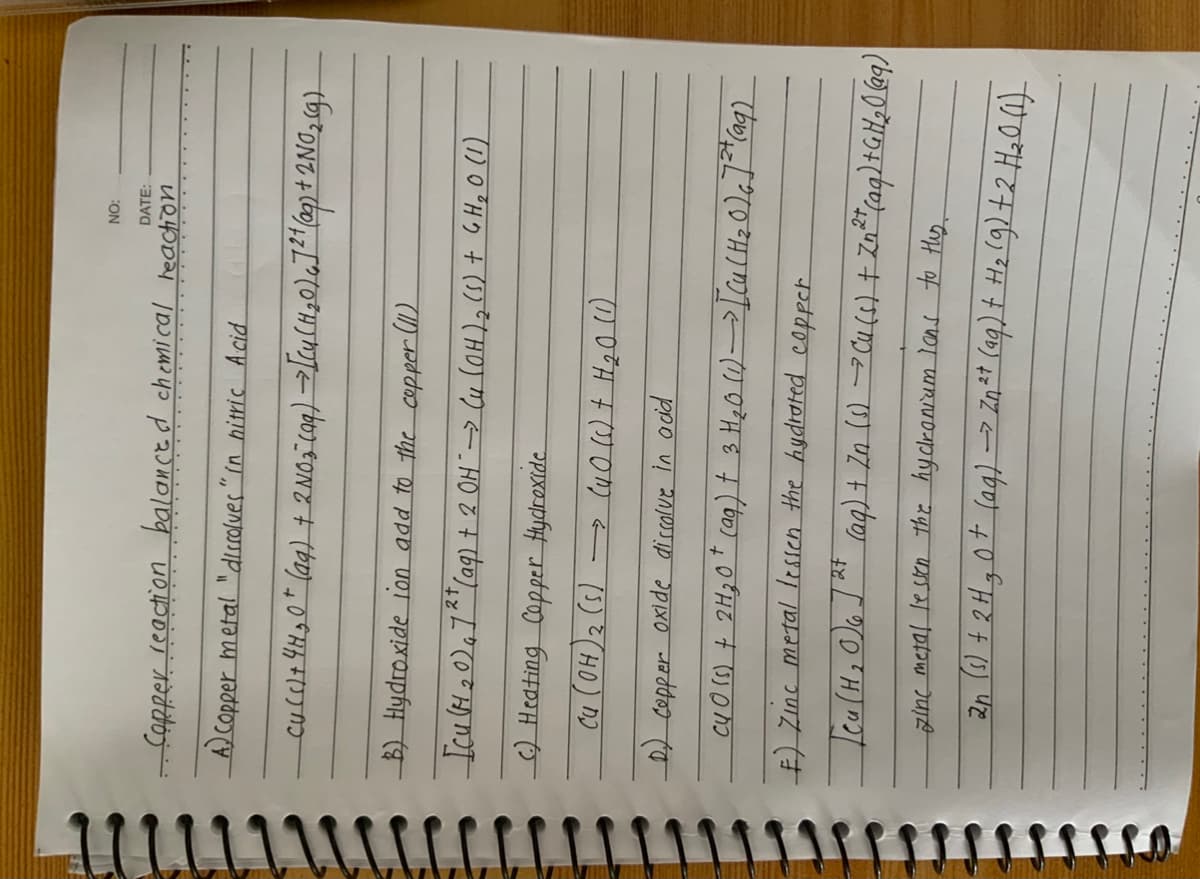 NO:
DATE:
Copper reaction balanced chemical reaction
A) Copper metal "dissolves" in nitric Acid
Cu(s) + 4H₃O⁺ (aq) + 2NO₃⁻(aq) → [Cu(H₂O)₆]²⁺(aq) + 2NO₂(g)
B) Hydroxide ion add to the copper (II)
[Cu(H₂O)₆]²⁺(aq) + 2 OH⁻ → Cu(OH)₂(s) + 6H₂O(l)
C) Heating Copper Hydroxide
Cu(OH)₂(s) → CuO(s) + H₂O(l)
D.) Copper oxide dissolve in acid
CuO(s) + 2H₃O⁺(aq) + 3H₂O(l) → [Cu(H₂O)₆]²⁺(aq)
E) Zinc metal lessen the hydrated copper
[Cu(H₂O)₆]²⁺ (aq) + Zn(s) → Cu(s) + Zn²⁺(aq) + 6H₂O(aq)
Zinc metal lessen the hydronium ions to H₂g.
Zn(s) + 2H₃O⁺ (aq) → Zn²⁺(aq) + H₂(g) + 2H₂O(l)